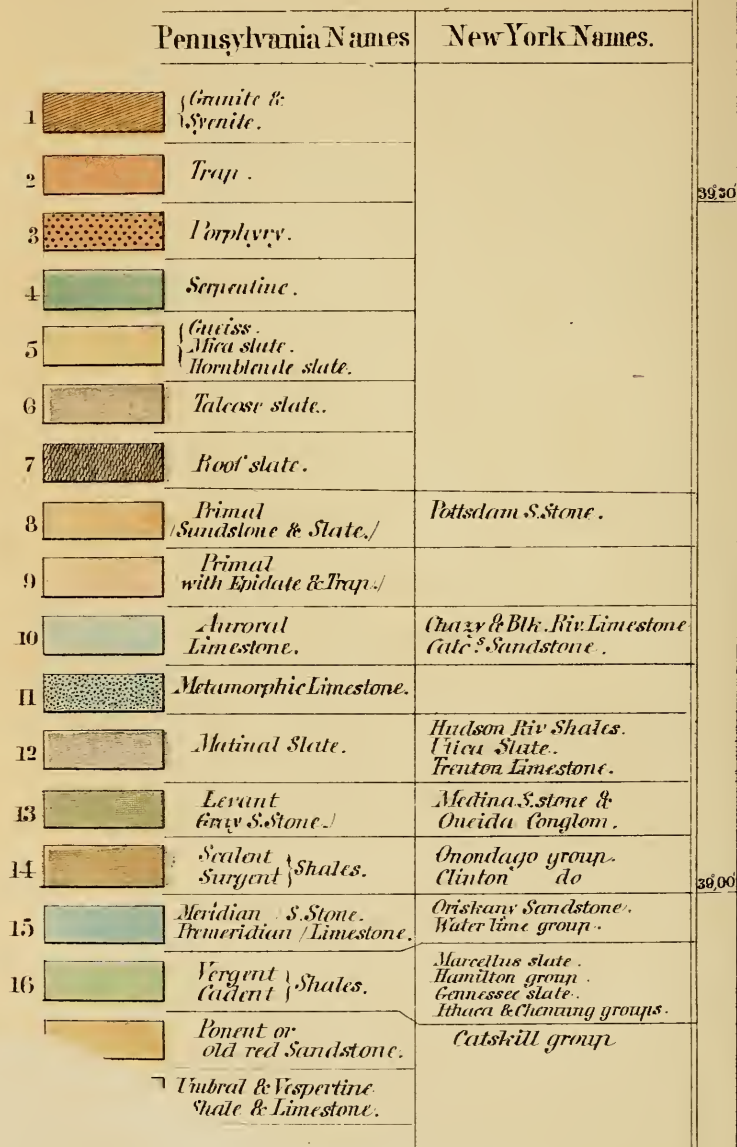 Pennsylvania Names
New York Names.
1 Granite &
Syenite.
2 Trap.
39,30
3 Porphyry.
4 Serpentine.
5 Gneiss.
Mica slate.
Hornblende slate.
6 Talcose slate.
7 Roof slate.
8 Primal
(Sandstone & Slate.)
Pottsdam S.Stone.
9 Primal
with Epidate & Trap.)
10 Auroral
Limestone.
Chazy & Blk. Riv. Limestone
Calcs. Sandstone.
11 Metamorphic Limestone.
12 Matinal Slate.
Hudson Riv Shales.
Utica Slate.
Trenton Limestone.
13 Levant
Gray S.Stone.)
Medina S.stone &
Oneida Conglom.
14 Scalent
Surgent Shales.
Onondago group.
Clinton do
39,00
15 Meridian S.Stone.
Premeridian (Limestone.
Oriskany Sandstone.
Water lime group.
16 Vergent
Cadent Shales.
Marcellus slate.
Hamilton group.
Gennessee slate.
Ithaca & Chemung groups.
Ponent or
old red Sandstone.
Catskill group
Umbral & Vespertine
Shale & Limestone.